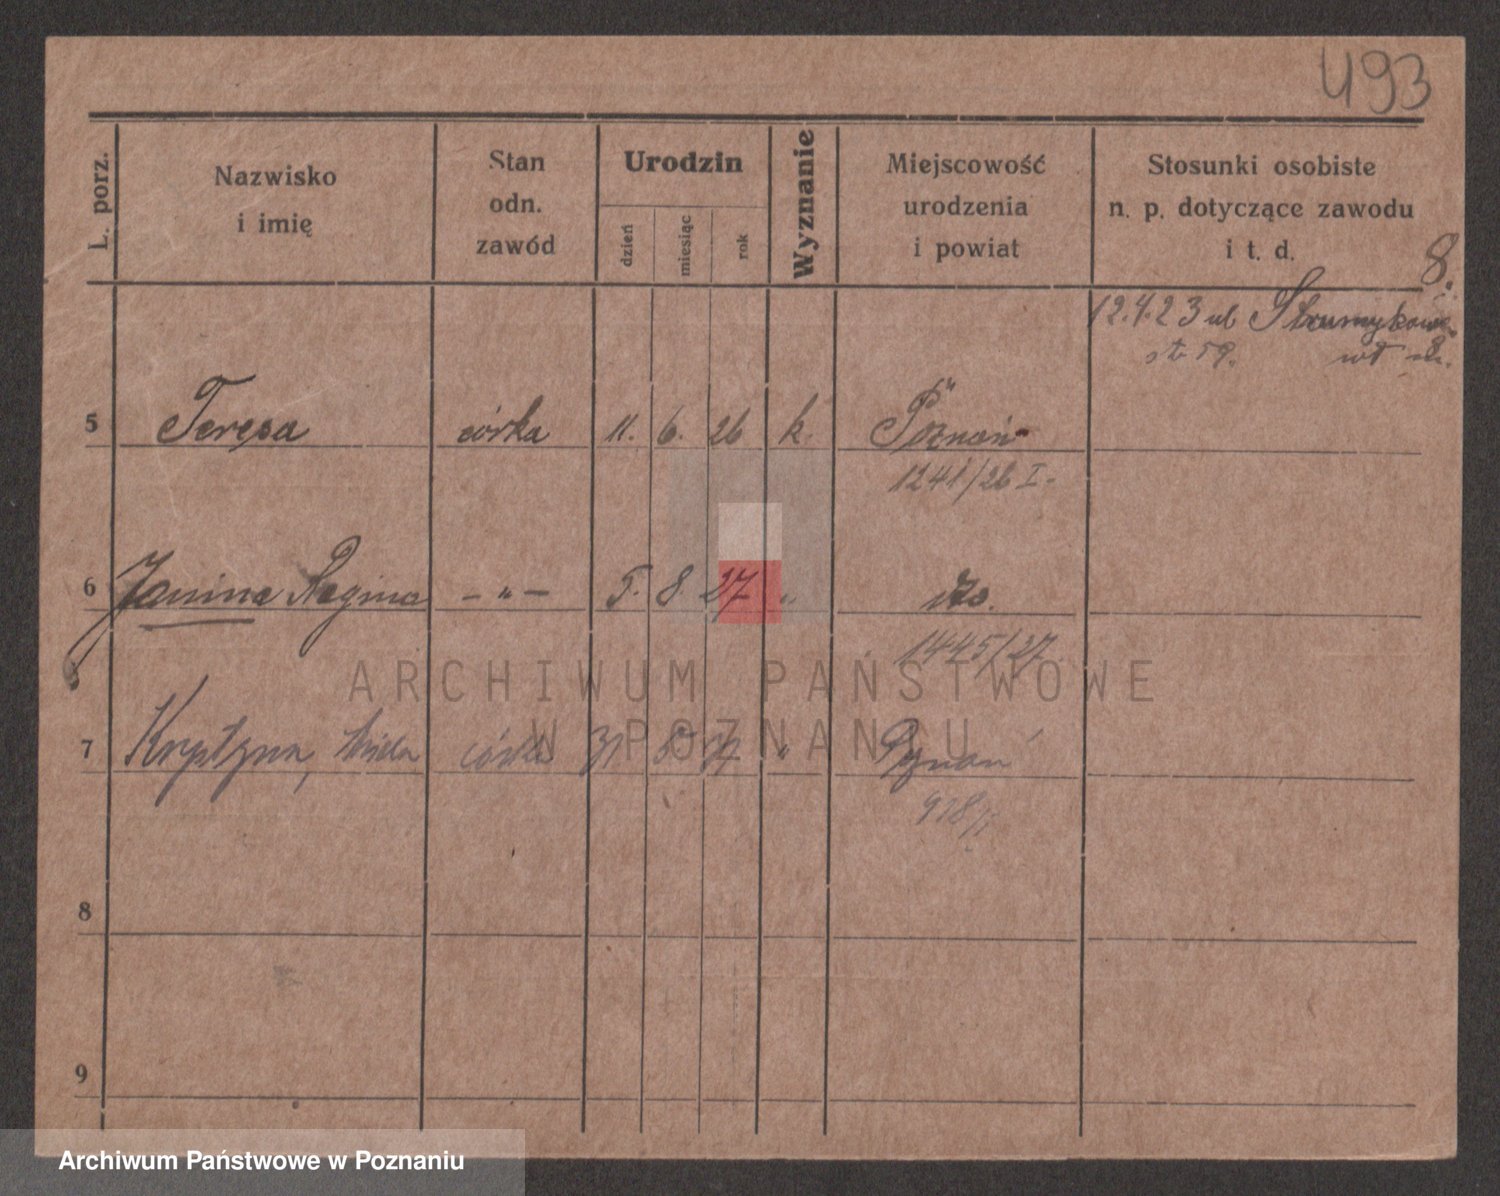 493
L. porz.
Nazwisko
i imię
Stan
odn.
zawód
Urodzin
dzień
miesiąc
rok
Wyznanie
Miejscowość
urodzenia
i powiat
Stosunki osobiste
n. p. dotyczące zawodu
i t. d.
8.
12.4.23 ul Strumykowa
59. 8
5 Teresa córka 11. 6. 26 k. Poznań
1241/26 I.
6 Janina Regina – „ – 5. 8. 27 „ dto.
1445/27
ARCHIWUM PAŃSTWOWE
W POZNANIU
7 Krystyna, córka 31 „ Poznań
918/I
8
9
Archiwum Państwowe w Poznaniu